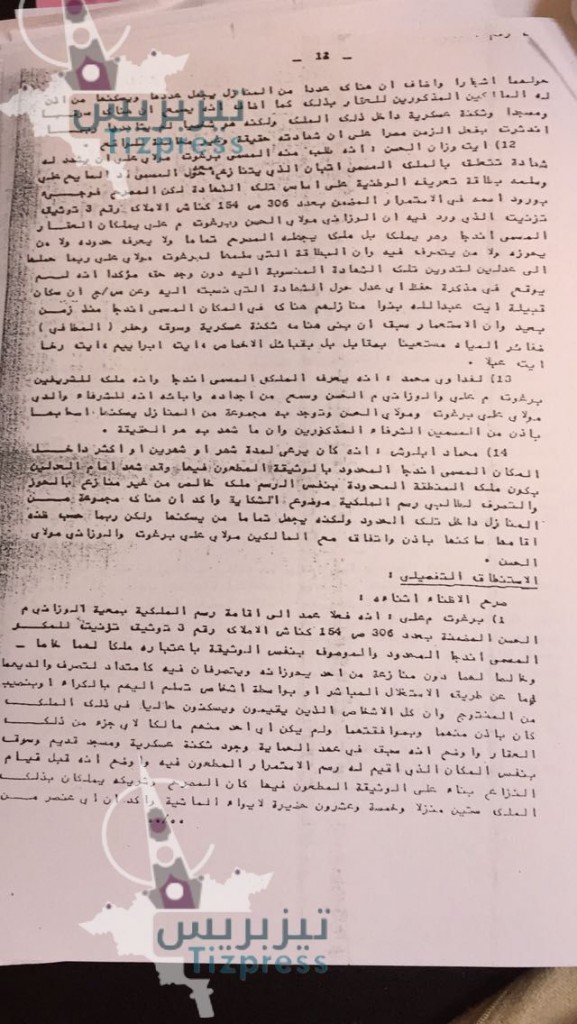 - 12 -
حولهما اشجارا واضاف ان هناك عددا من المنازل يجهل عددها ويسكنها من اذن
له المالكين المذكورين للعقار بذلك كما اضاف انه يسمع ان هناك
ومسجدا وثكنة عسكرية داخل ذلك الملك ولكنه هو شخصيا لم يعاينها
اندثرت بفعل الزمن مصرا على ان شهادته حقيقة
12) ايت وزان الحسن : انه طلب منه المسمى برغوت علي ان يشهد له
شهادة تتعلق بالملك المسمى اتهان الذي يتنازع حول المسمى
وسلمه بطاقة تعريفه الوطنية على اساس تلك الشهادة لكن المصرح فوجئ
بورود اسمه في الاستمرار المضمن بعدد 306 ص 154 كناش الاملاك رقم 3 توثيق
تزنيت الذي ورد فيه ان الوزاني مولاي الحسن وبرغوت م علي يملكان العقار
المسمى اندجا وهو يملك بل ملك يجهله المصرح تماما ولا يعرف حدوده ولا من
يحوزه ولا من يتصرف فيه وان البطاقة التي سلمها لبرغوت مولاي علي ربما حملها
الى عدلين لتدوين تلك الشهادة المنسوبة اليه دون وجه حق مؤكدا انه لم
يوقع في مذكرة حفظ اي عدل حول الشهادة التي نسبت اليه وعن س/ج ان سكان
قبيلة ايت عبدالله بنوا منازلهم هناك في المكان المسمى اندجا منذ زمن
بعيد وان الاستعمار سبق ان بنى هناك ثكنة عسكرية وسوق وحفر (المطافي)
خفائر المياه مستعينا بمقابل بل بقبائل الاخصاص ،ايت ابراييم ،ايت رخا
ايت عبلا .
13) لغداوي محمد : انه يعرف الملك المسمى اندجا وانه ملك للشريفين
برغوت م علي والوزاني م الحسن وسمع من اجداده وابائه انه للشرفاء والدي
مولاي علي برغوت ومولاي الحسن وتوجد به مجموعة من المنازل يسكنها اصحابها
باذن من المسمين الشرفاء المذكورين وان ما شهد به هو الحقيقة .
14) محماد ابلوش : انه كان يرعى لمدة شهر او شهرين او اكثر داخل
المكان المسمى اندجا المحدود بالوثيقة المطعون فيها وقد شهد امام العدلين
بكون ملك المنطقة المحدودة بنفس الرسم ملك خالص من غير منازع بالحوز
والتصرف لطالبي رسم الملكية موضوع الشكاية واكد ان هناك مجموعة من
المنازل داخل تلك الحدود ولكنه يجهل تماما من يسكنها ولكن ربما حسب ظنه
اقامها ساكنها باذن واتفاق مع المالكين مولاي علي برغوت والوزاني مولاي
الحسن .
الاستنطاق التفصيلي :
صرح الاظناء اثناءه :
1) برغوت م علي : انه فعلا عمد الى اقامة رسم الملكية بمعية الوزاني م
الحسن المضمنة بعدد 306 ص 154 كناش الاملاك رقم 3 توثيق تزنيت للملك
المسمى اندجا المحدود والموصوف بنفس الوثيقة باعتباره ملكا لهما خاصا
وخالصا لهما دون منازعة من احد يحوزانه ويتصرفان فيه كامتداد لتصرف والديهما
قيما عن طريق الاستغلال المباشر او بواسطة اشخاص تسلم اليهم بالكراء او بنصيب
من المنتوج وان كل الاشخاص الذين يقيمون ويسكنون حاليا في ذلك الملك
كان باذن منهما وبموافقتهما ولم يكن اي احد منهم مالكا لاي جزء من ذلك
العقار واوضح انه سبق في عهد الحماية وجود ثكنة عسكرية ومسجد قديم وسوق
بنفس المكان الذي اقيم له رسم الاستمرار المطعون فيه واوضح انه قبل قيام
النزاع بناء على الوثيقة المطعون فيها كان المصرح وشريكه يملكان بذلك
الملك ستين منزلا وخمسة وعشرون حضيرة لايواء الماشية واكد ان اي عنصر من
...../.
تيزبريس
Tizpress
تيزبريس
Tizpress